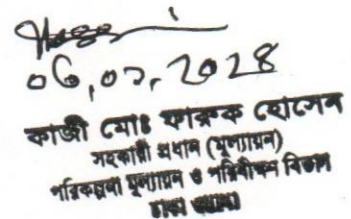 06,02,2028
কাজী মোঃ ফারুক হোসেন
সহকারী প্রধান (মূল্যায়ন)
পরিকল্পনা মূল্যায়ন ও পরিবীক্ষণ বিভাগ